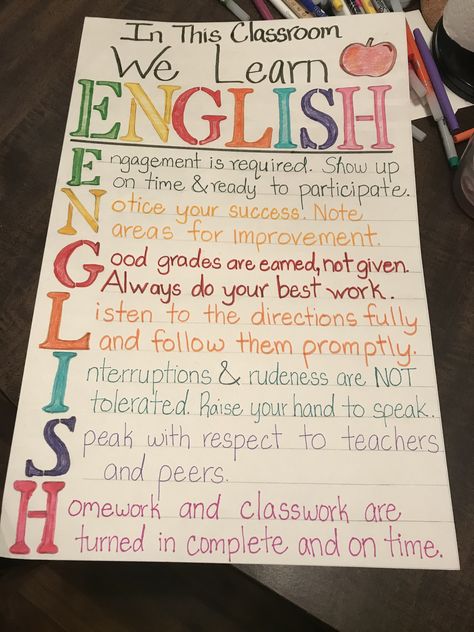 In This Classroom
We Learn
ENGLISH
Engagement is required. Show up
on time & ready to participate.
Notice your success. Note
areas for improvement.
Good grades are earned, not given.
Always do your best work.
Listen to the directions fully
and follow them promptly.
Interruptions & rudeness are NOT
tolerated. Raise your hand to speak.
Speak with respect to teachers
and peers.
Homework and classwork are
turned in complete and on time.